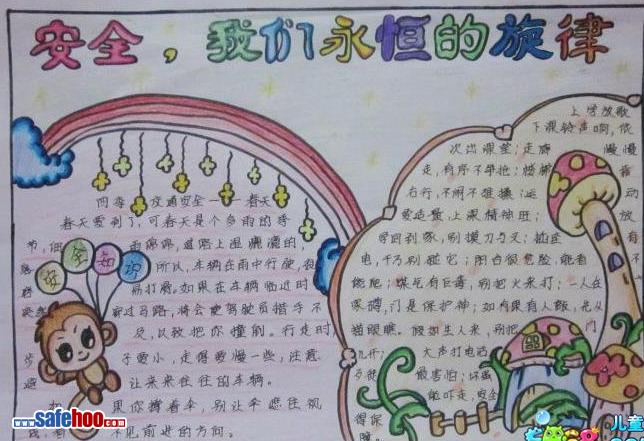 安全，我们永恒的旋律
四季交通安全一一春天
春天要到了，可春天是个多雨的季
节，细雨婷婷，道路上湿漉漉的，
所以，车辆在雨中行驶，很
易打磨。如果在车辆临近时
突然穿过马路，将会使驾驶员措手不
及，以致把你撞倒。行走时
步子要小，走得要慢一些，注意
避让来来往往的车辆。
如果你撑着伞，别让伞遮住视
线，看不见前进的方向。
安全知识
上学放歌
下课铃声响，依
次出课堂；走廊慢慢
走，有序不争抢；楼梯靠
右行，不闹不推搡；运动
要适量，上课精神旺；放
学回到家，别摸刀与叉；插座有
电，千万别碰它；阳台很危险，
煤气有巨毒，别把火来打；一人在
家蹲，门是保护神；如有果有人敲，先从
猫眼瞧。假如生人来，别把门
儿开；大声打电话，
歹徒最害怕；坏蛋
能吓走，安全
得保障。
www.safehoo.com
儿童